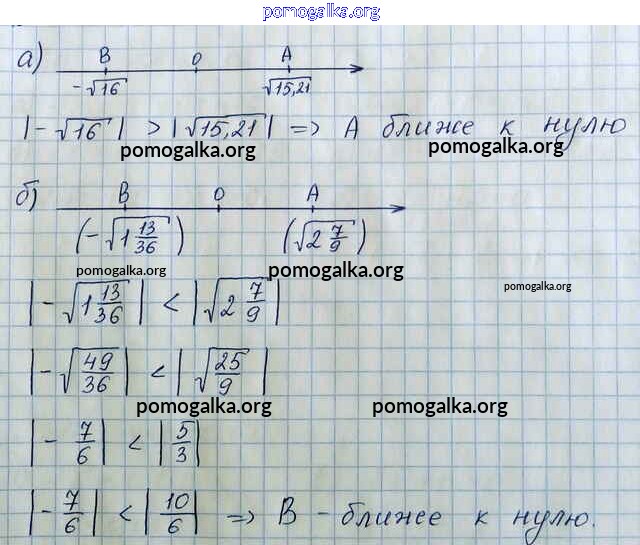 pomogalka.org
а) B O A
-√16 √15,21
|-√16| > |√15,21| => A ближе к нулю
pomogalka.org pomogalka.org
б) B O A
(-√1 13/36) (√2 7/9)
pomogalka.org pomogalka.org pomogalka.org
|-√1 13/36| < |√2 7/9|
|-√49/36| < |√25/9|
pomogalka.org pomogalka.org
|-7/6| < |5/3|
|-7/6| < |10/6| => B - ближе к нулю.